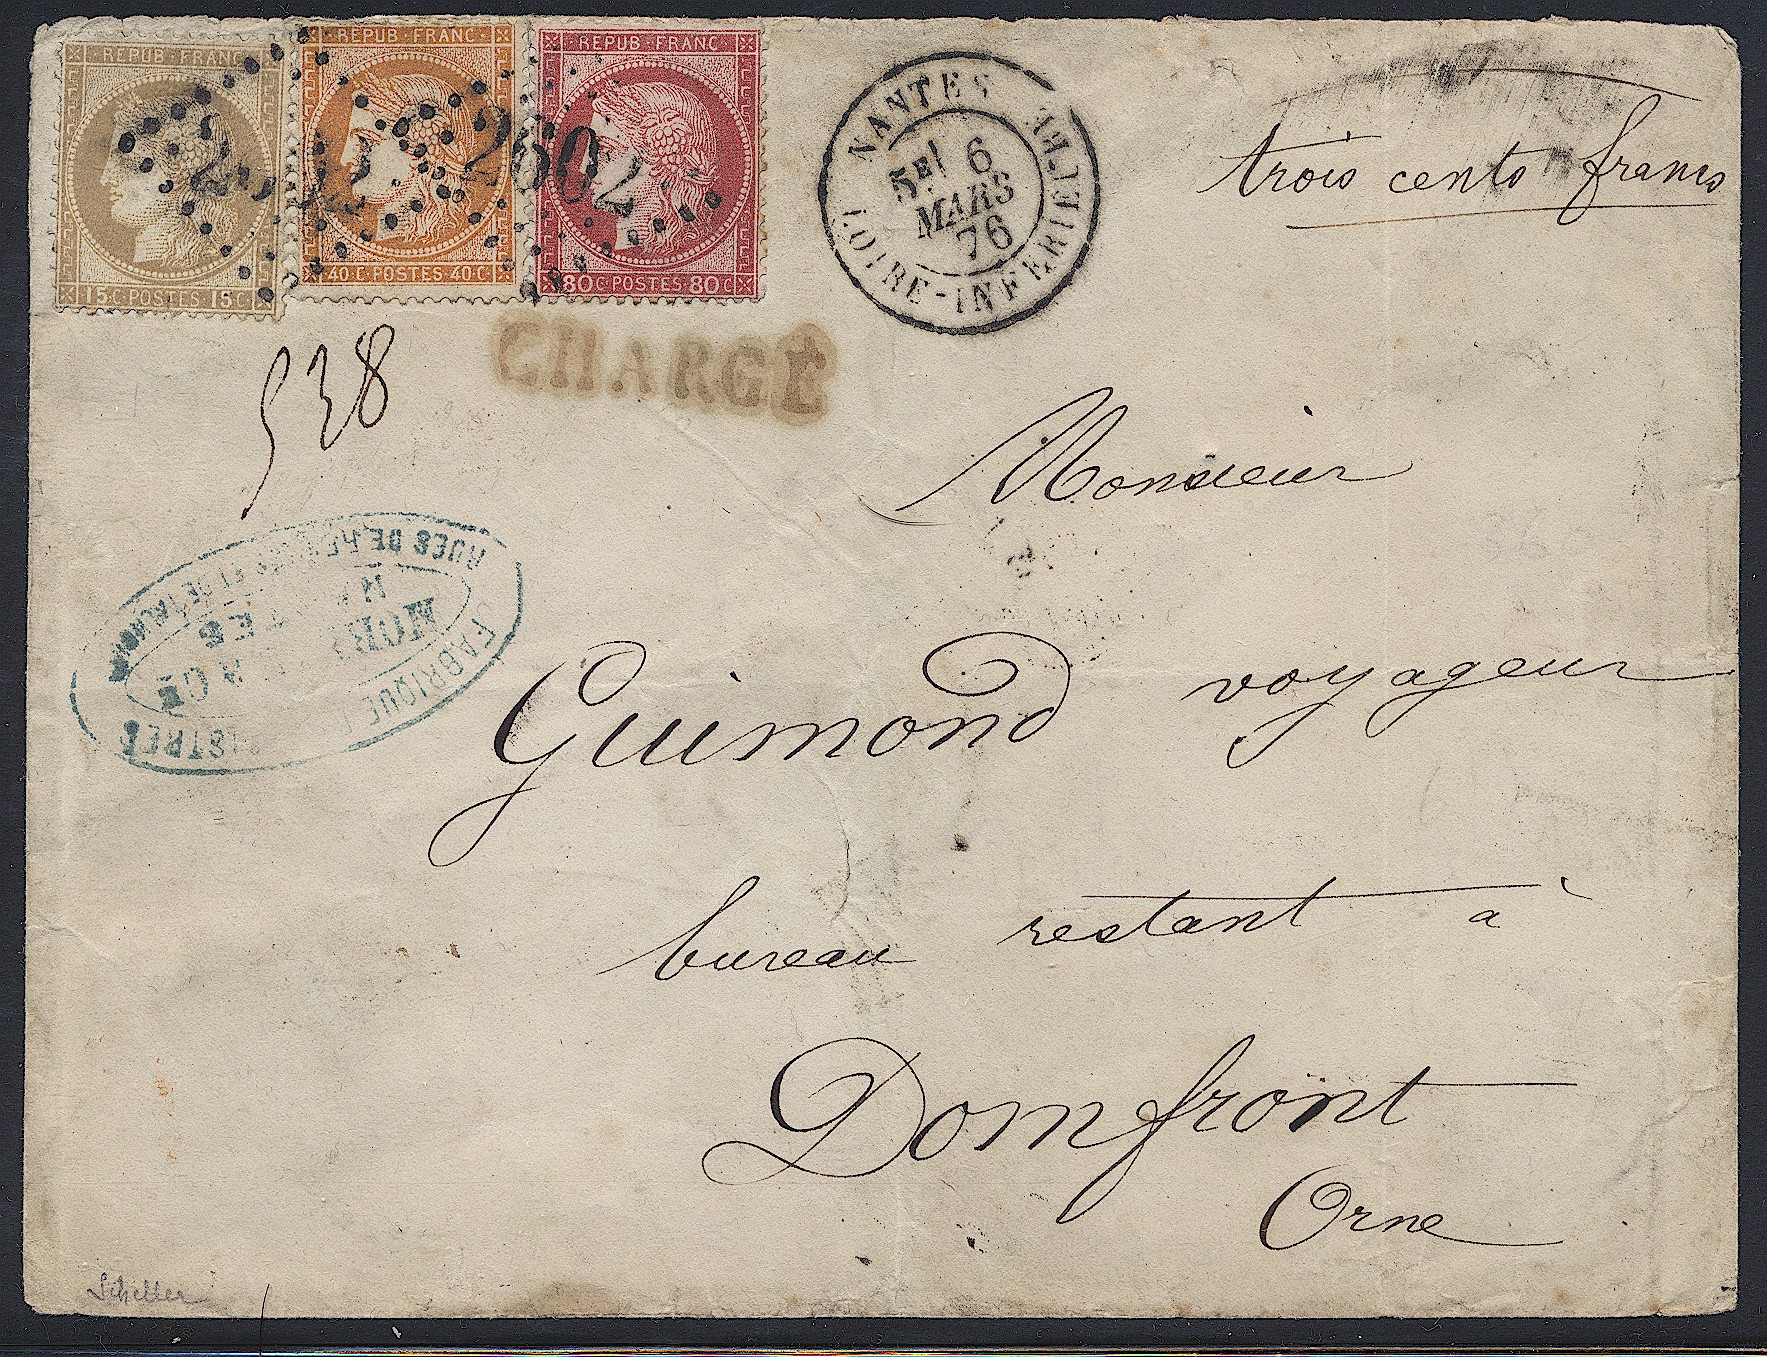 REPUB·FRANC
15·C·POSTES·15·C
REPUB·FRANC
40·C·POSTES·40·C
REPUB·FRANC
80·C·POSTES·80·C
2602
NANTES
5E/ 6
MARS
76
LOIRE-INFÉRIEURE
trois cents francs
CHARGÉ
538
RUES DE ET DE
NANTES
FABRIQUE
Monsieur
Guimond voyageur
bureau restant à
Domfront
Orne
Scheller